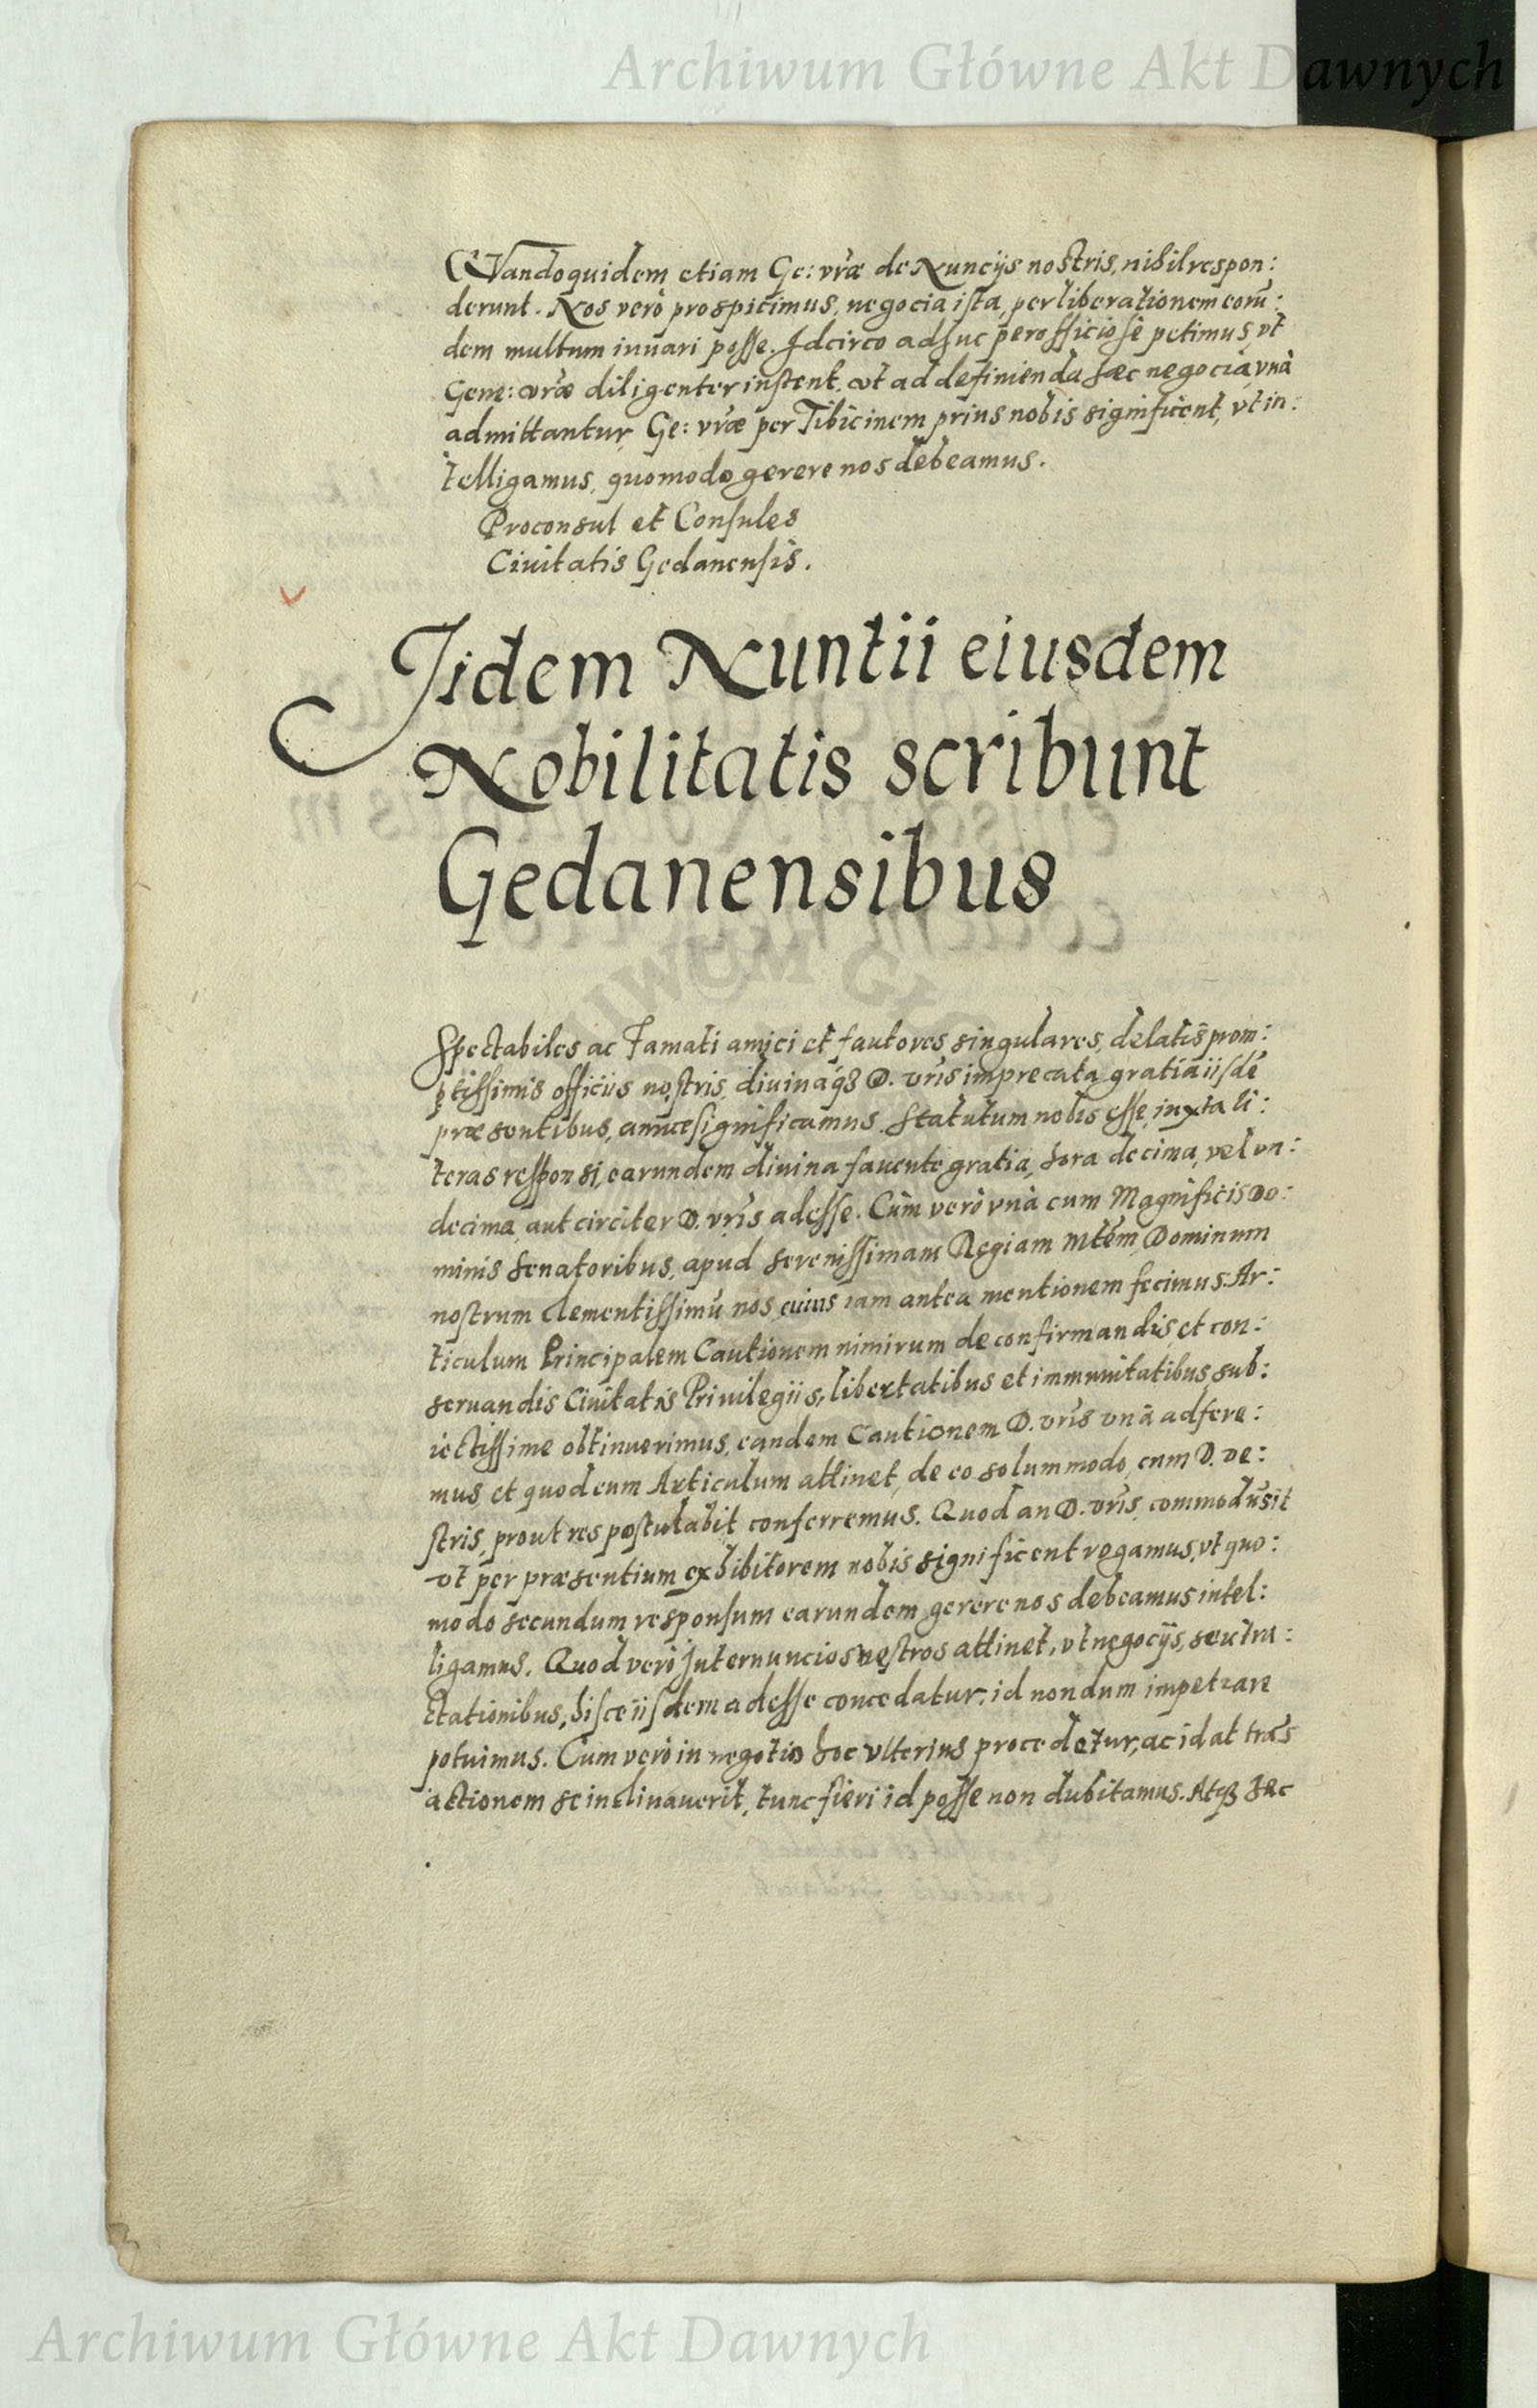 Archiwum Główne Akt Dawnych
QVandoquidem etiam Ge: vrae de Nuncijs nostris, nihil respon:
derunt. Nos verò prospicimus, negocia ista, per liberationem eorū:
dem multum iuuari posse. Idcirco adhuc perofficiosè petimus, vt
Gene: vrae diligenter instent, vt ad definienda haec negocia, vnà
admittantur, Ge: vrae per Tibicinem prius nobis significent, vt in:
telligamus, quomodo gerere nos debeamus.
Proconsul et Consules
Ciuitatis Gedanensis.
Iidem Nuntii eiusdem
Nobilitatis scribunt
Gedanensibus
Spectabiles ac Famati amici et fautores singulares, delatis prom:
ptissimis officiis nostris, diuinaqꝫ D. vris imprecata gratia iisdē
praesentibus, amice significamus. Statutum nobis esse, iuxta li:
teras responsi, earundem diuina fauente gratia, hora decima, vel vn:
decima, aut circiter D. vris adesse. Cùm verò vnà cum Magnificis Do:
minis Senatoribus, apud Serenissimam Regiam Mtem, Dominum
nostrum Clementissimū nos, cuius iam antea mentionem fecimus. Ar:
ticulum Principalem Cautionem nimirum de confirmandis, et con:
seruandis Ciuitatis Priuilegiis, libertatibus et immunitatibus, sub:
iectissime obtinuerimus, eandem Cautionem D. vris vnà adfere:
mus, et quod eum Articulum attinet, de eo solummodo, cum D. ve:
stris, prout res postulabit conferremus. Quod an D. vris, commodū sit
vt per praesentium exhibitorem nobis significent rogamus, vt quo:
modo secundum responsum earundem gerere nos debeamus intel:
ligamus. Quod verò Internuncios vestros attinet, vt negocijs, seu tra:
ctationibus, hisce iisdem adesse concedatur, id nondum impetrare
potuimus. Cum verò in negotio hoc vlterius procedetur, ac id at trās
actionem se inclinauerit, tunc fieri id posse non dubitamus. Atqꝫ haec
Archiwum Główne Akt Dawnych